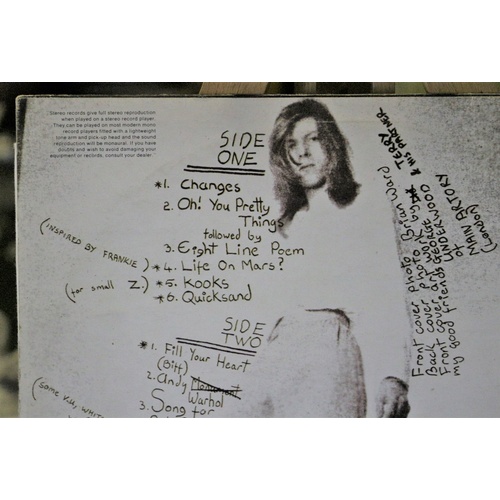 Stereo records give full stereo reproduction
when played on a stereo record player.
They can be played on most modern mono
record players fitted with a lightweight
tone arm and pick-up head and the sound
reproduction will be monaural. If you have
doubts and wish to avoid damaging your
equipment or records, consult your dealer.
SIDE
ONE
*1. Changes
2. Oh! You Pretty
Things
followed by
3. Eight Line Poem
(INSPIRED BY FRANKIE) *4. Life On Mars?
(for small Z.) *5. Kooks
*6. Quicksand
SIDE
TWO
*1. Fill Your Heart
(Biff)
2. Andy
Warhol
(Some V.U., WHIT
3. Song for
Front cover photo Brian Ward
Back cover photo by
Front cover art work TERRY & HIS PARTNER
my good friend GEORGE
UNDERWOOD
of
MAIN ARTORY
(London)